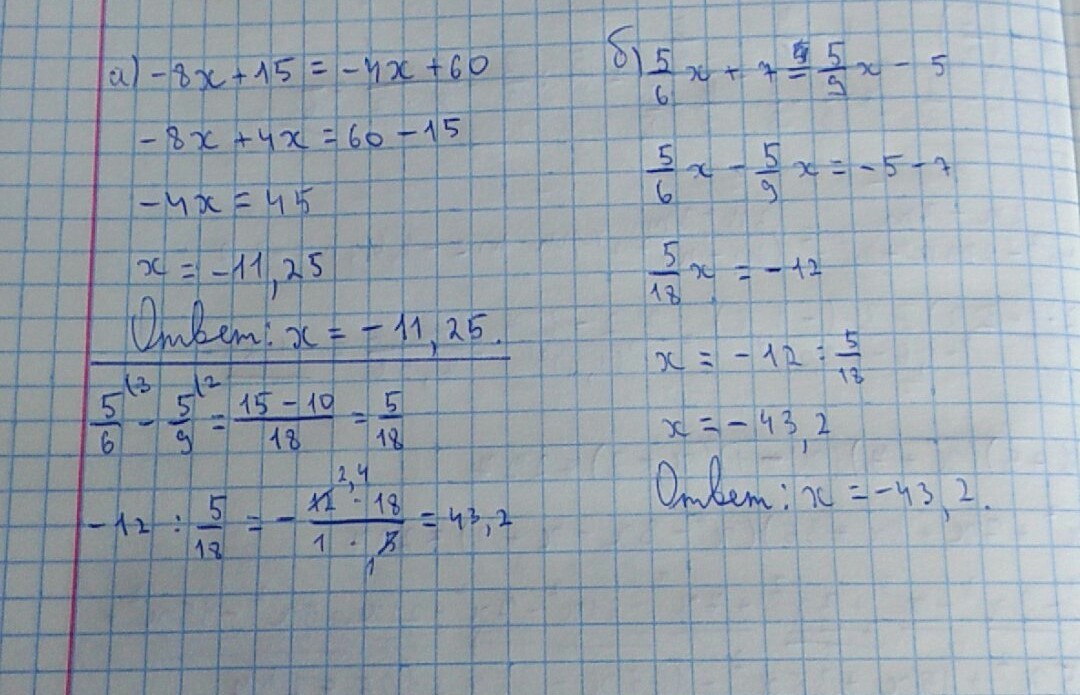 а) -8x + 15 = -4x + 60
-8x + 4x = 60 - 15
-4x = 45
x = -11,25
Ответ: x = -11,25.
5/6 \3 - 5/9 \2 = (15 - 10)/18 = 5/18
-12 : 5/18 = - (12 2,4 · 18)/(1 · 5 1) = 43,2
б) 5/6 x + 7 = 5/9 x - 5
5/6 x - 5/9 x = -5 - 7
5/18 x = -12
x = -12 : 5/18
x = -43,2
Ответ: x = -43,2.